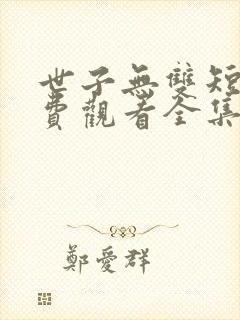 世子無雙短
費觀看全集
鄭愛群